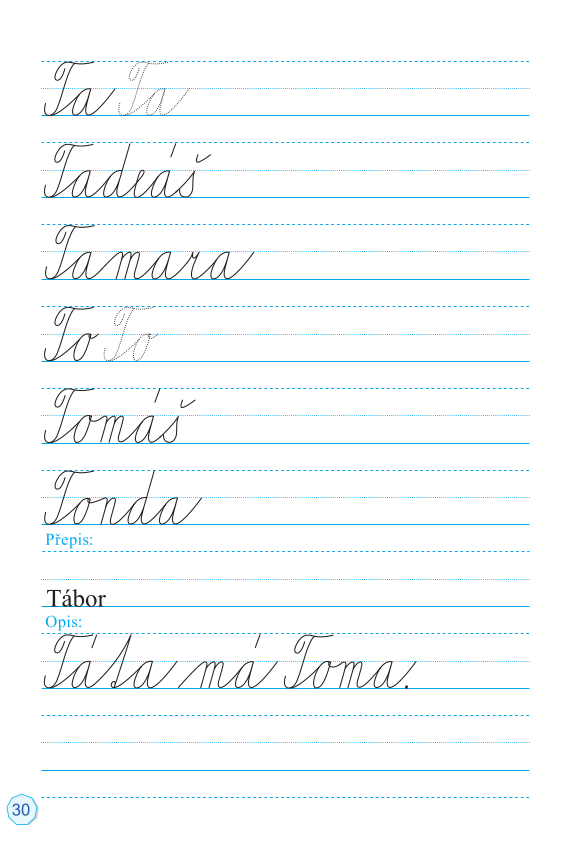 Ta Ta
Tadeáš
Tamara
To To
Tomáš
Tonda
Přepis:
Tábor
Opis:
Táta má Toma.
30